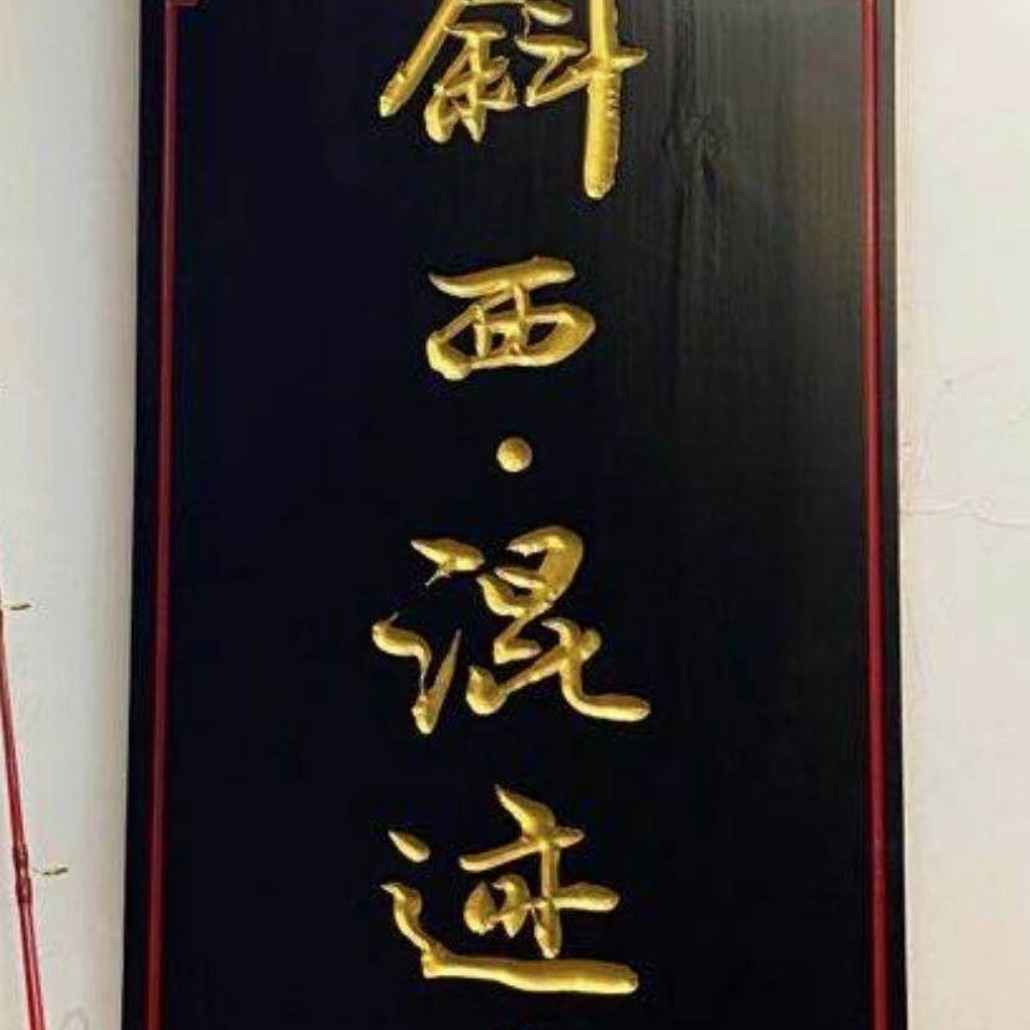 斜西·混迹